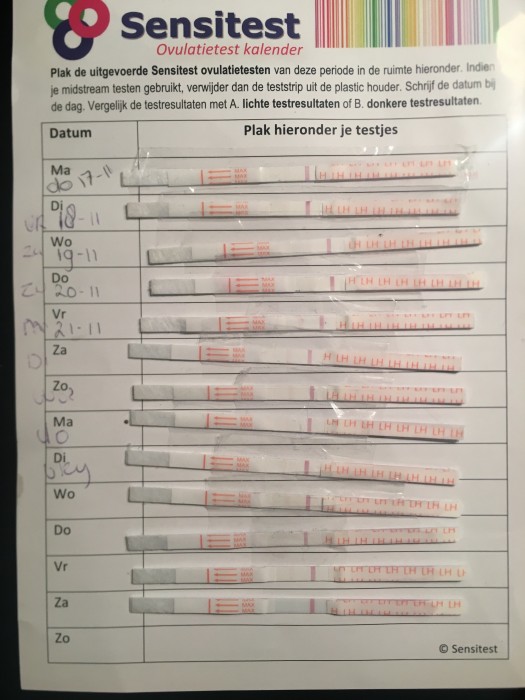 Sensitest
Ovulatietest kalender
Plak de uitgevoerde Sensitest ovulatietesten van deze periode in de ruimte hieronder. Indien
je midstream testen gebruikt, verwijder dan de teststrip uit de plastic houder. Schrijf de datum bij
de dag. Vergelijk de testresultaten met A. lichte testresultaten of B. donkere testresultaten.
Datum Plak hieronder je testjes
Ma
do 17-11 MAX LH LH LH LH LH
Di
VR 18-11 MAX LH LH LH LH LH
Wo
19-11 MAX LH LH LH LH LH LH
Do
20-11 MAX LH LH LH LH LH LH
Vr
21-11 MAX LH LH LH LH LH
Za MAX LH LH LH LH LH LH
Zo MAX LH LH LH LH LH
Ma
do MAX LH LH LH LH LH LH
Di MAX LH LH LH LH LH LH
Wo MAX LH LH LH LH LH
Do MAX LH LH LH LH LH
Vr MAX LH LH LH LH LH LH
Za MAX LH LH LH LH LH
Zo
© Sensitest